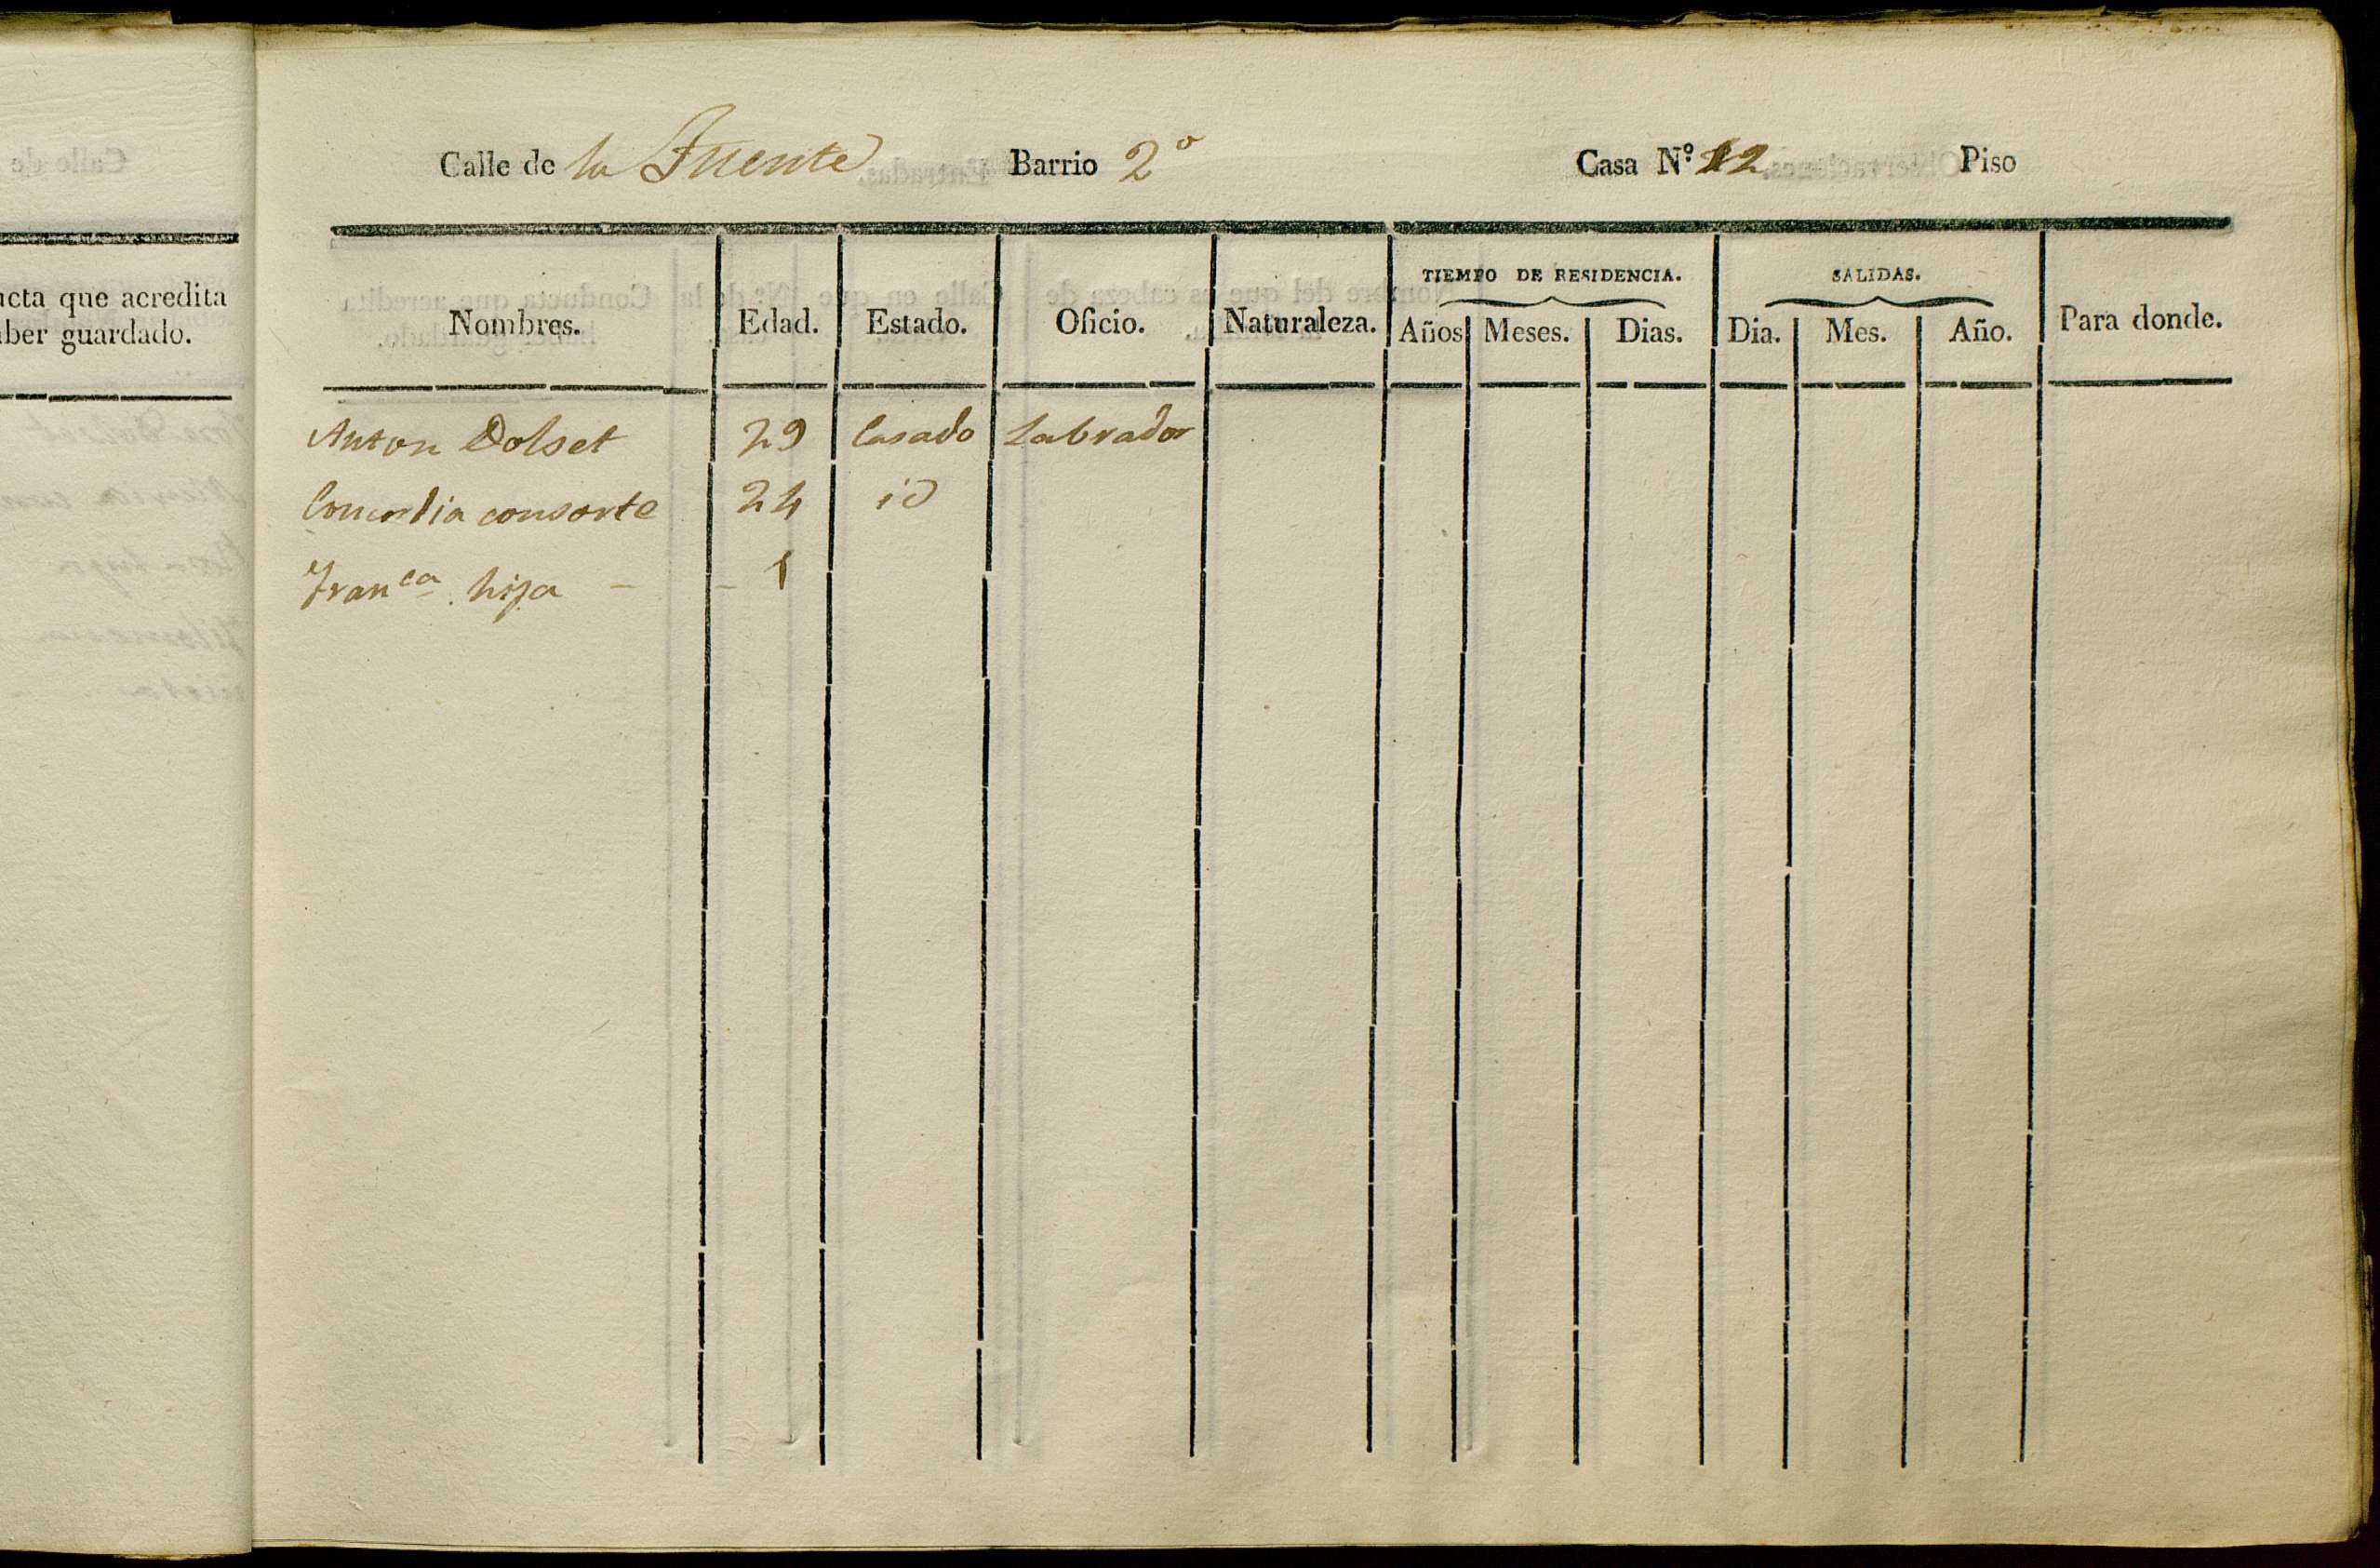 Calle de la Fuente Barrio 2º Casa Nº 12 Piso
ucta que acredita
aber guardado.
TIEMPO DE RESIDENCIA. SALIDAS.
Nombres. Edad. Estado. Oficio. Naturaleza. Años Meses. Dias. Dia. Mes. Año. Para donde.
Anton Dolset 29 Casado Labrador
Concordia consorte 24 id
Franca hija - - 1